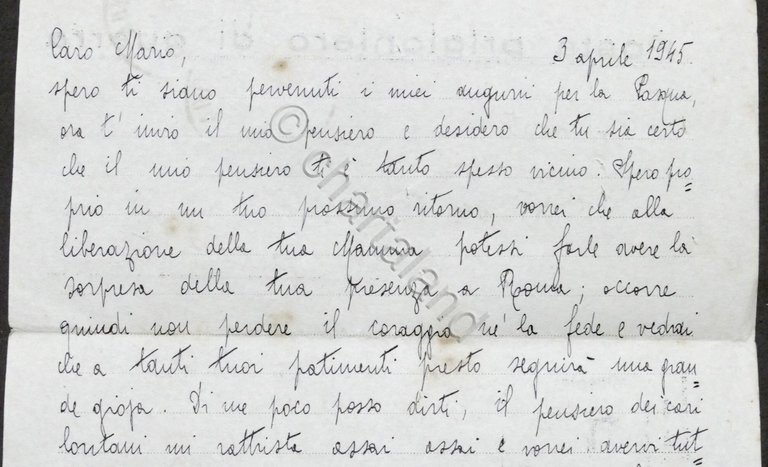 Caro Mario,
3 aprile 1945.
spero ti siano pervenuti i miei auguri per la Pasqua,
ora t'invio il mio pensiero e desidero che tu sia certo
che il mio pensiero ti è tanto spesso vicino. Spero pro=
prio in un tuo prossimo ritorno, vorrei che alla
liberazione della tua Mamma potessi farle avere la
sorpresa della tua presenza a Roma; occorre
quindi non perdere il coraggio nè la fede e vedrai
che a tanti tuoi patimenti presto seguirà una gran=
de gioja. Di me poco posso dirti, il pensiero dei cari
lontani mi rattrista assai assai e vorrei avervi tut=
© chartaland
prigioniero di guerra